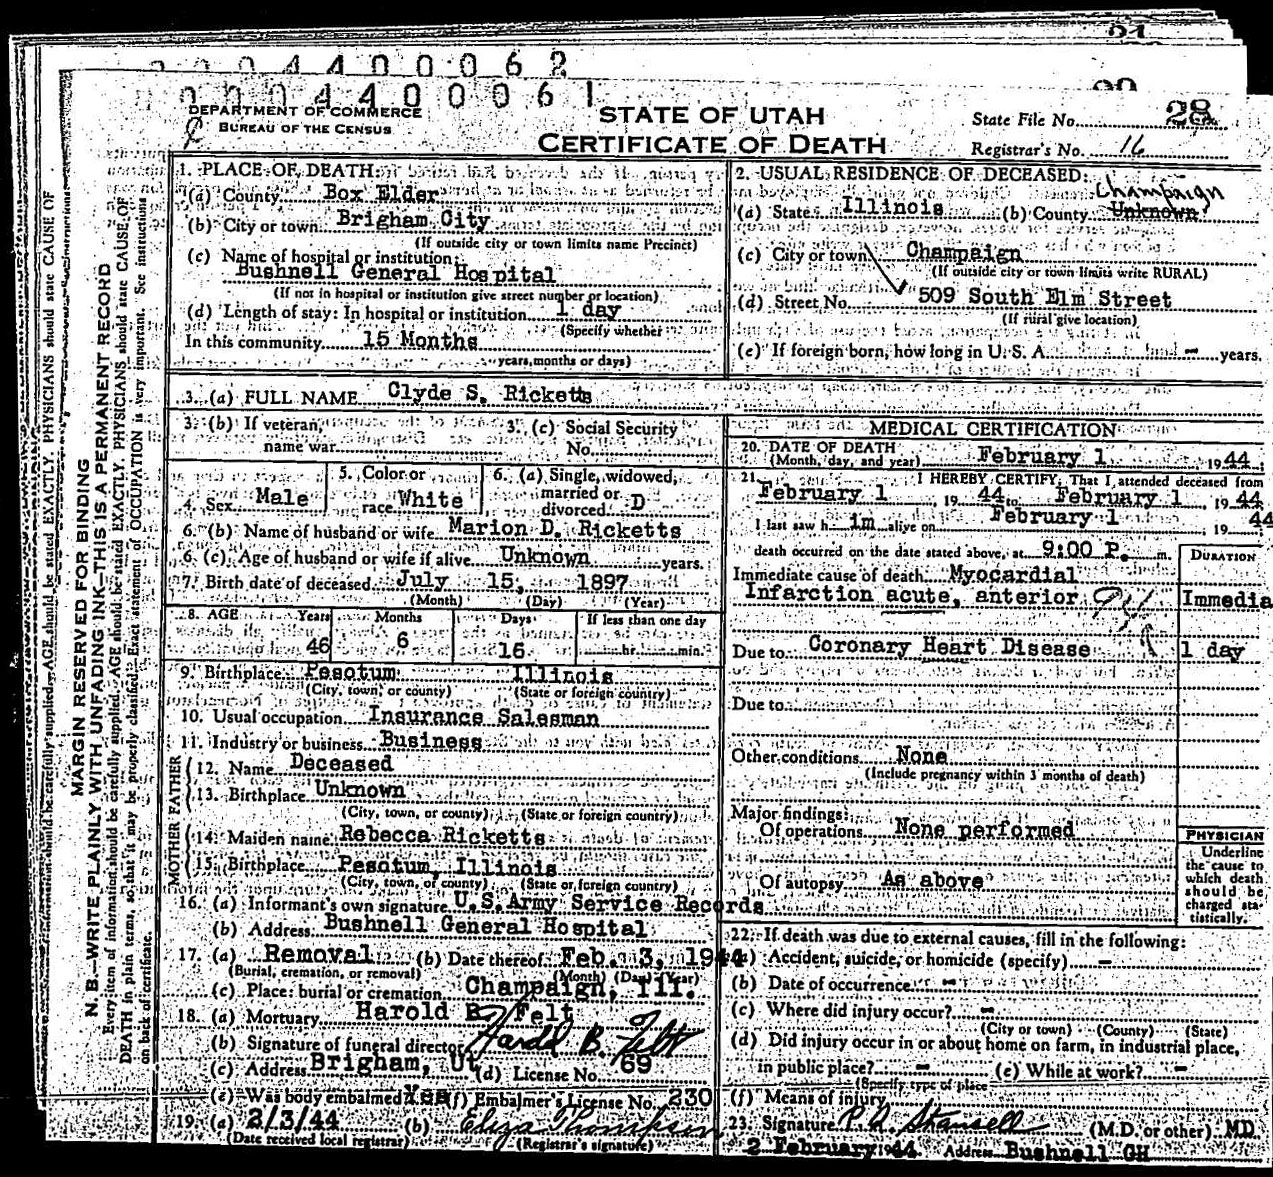 00044000062
00044000061
DEPARTMENT OF COMMERCE
BUREAU OF THE CENSUS
STATE OF UTAH
CERTIFICATE OF DEATH
State File No. 28
Registrar's No. 16
MARGIN RESERVED FOR BINDING
N. B.—WRITE PLAINLY WITH UNFADING INK—THIS IS A PERMANENT RECORD
Every item of information should be carefully supplied. AGE should be stated EXACTLY. PHYSICIANS should state CAUSE OF
DEATH in plain terms, so that it may be properly classified. Exact statement of OCCUPATION is very important. See instructions
on back of certificate.
1. PLACE OF DEATH:
(a) County Box Elder
(b) City or town Brigham City
(If outside city or town limits name Precinct)
(c) Name of hospital or institution:
Bushnell General Hospital
(If not in hospital or institution give street number or location)
(d) Length of stay: In hospital or institution 1 day
(Specify whether
In this community 15 Months
years, months or days)
2. USUAL RESIDENCE OF DECEASED:
Champaign
(a) State Illinois (b) County Unknown
(c) City or town Champaign
(If outside city or town limits write RURAL)
(d) Street No. 509 South Elm Street
(If rural give location)
(e) If foreign born, how long in U. S. A. - years.
3. (a) FULL NAME Clyde S. Ricketts
3. (b) If veteran, name war
3. (c) Social Security No.
4. Sex Male
5. Color or race White
6. (a) Single, widowed, married or divorced D
6. (b) Name of husband or wife Marion D. Ricketts
6. (c) Age of husband or wife if alive Unknown years.
7. Birth date of deceased July 15, 1897
(Month) (Day) (Year)
8. AGE Years Months Days If less than one day
46 6 16 hr. min.
9. Birthplace Pesotum Illinois
(City, town, or county) (State or foreign country)
10. Usual occupation Insurance Salesman
11. Industry or business Business
FATHER
12. Name Deceased
13. Birthplace Unknown
(City, town, or county) (State or foreign country)
MOTHER
14. Maiden name Rebecca Ricketts
15. Birthplace Pesotum, Illinois
(City, town, or county) (State or foreign country)
16. (a) Informant's own signature U.S. Army Service Records
(b) Address Bushnell General Hospital
17. (a) Removal (b) Date thereof Feb. 3, 1944
(Burial, cremation, or removal) (Month) (Day) (Year)
(c) Place: burial or cremation Champaign, Ill.
18. (a) Mortuary Harold B. Felt
(b) Signature of funeral director Harold B. Felt
(c) Address Brigham, Ut (d) License No. 69
(e) Was body embalmed Yes (f) Embalmer's License No. 230
19. (a) 2/3/44 (b) Eliza Thompson
(Date received local registrar) (Registrar's signature)
MEDICAL CERTIFICATION
20. DATE OF DEATH
(Month, day, and year) February 1 1944
21. I HEREBY CERTIFY, That I attended deceased from
February 1, 1944 to February 1, 1944
I last saw him alive on February 1 19 44
death occurred on the date stated above, at 9:00 P. m.
DURATION
Immediate cause of death Myocardial
Infarction acute, anterior Immedia
Due to Coronary Heart Disease 1 day
Due to
Other conditions None
(Include pregnancy within 3 months of death)
Major findings:
Of operations None performed
Of autopsy As above
PHYSICIAN
Underline
the cause to
which death
should be
charged sta-
tistically.
22. If death was due to external causes, fill in the following:
(a) Accident, suicide, or homicide (specify) -
(b) Date of occurrence -
(c) Where did injury occur? -
(City or town) (County) (State)
(d) Did injury occur in or about home on farm, in industrial place,
in public place? - (e) While at work? -
(Specify type of place
(f) Means of injury
23. Signature P. A. Stansell (M.D. or other) MD
2 February 1944 Address Bushnell GH